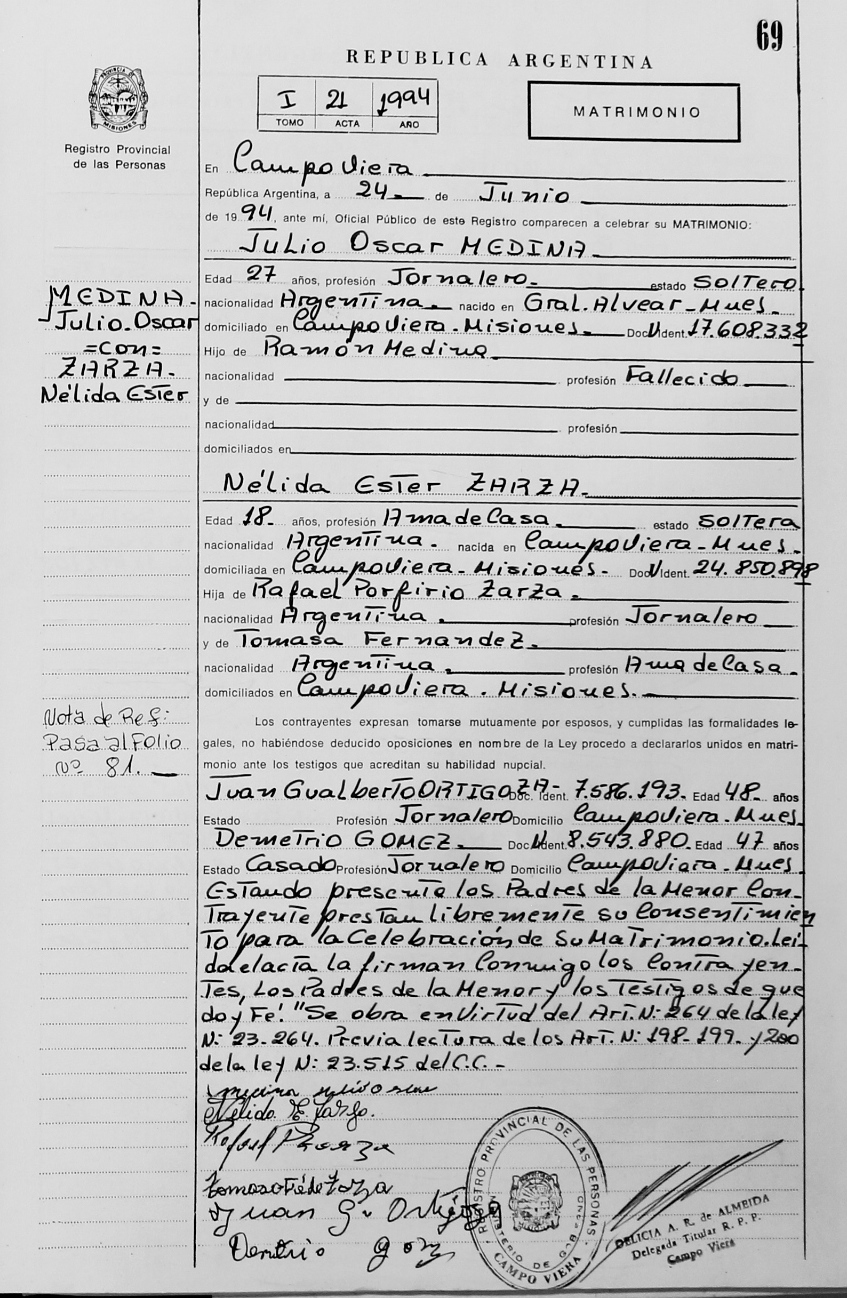 69
REPUBLICA ARGENTINA
I 21 1994
TOMO ACTA AÑO
MATRIMONIO
PROVINCIA DE MISIONES
Registro Provincial
de las Personas
En Campo Viera
República Argentina, a 24 de Junio
de 1994, ante mí, Oficial Público de este Registro comparecen a celebrar su MATRIMONIO:
Julio Oscar MEDINA
Edad 27 años, profesión Jornalero estado Soltero
nacionalidad Argentina nacido en Gral. Alvear - Mnes.
domiciliado en Campo Viera - Misiones Doc. N Ident. 17.608.332
Hijo de Ramón Medina
nacionalidad profesión Fallecido
y de
nacionalidad profesión
domiciliados en
Nélida Ester ZARZA
Edad 18 años, profesión Ama de Casa estado Soltera
nacionalidad Argentina nacida en Campo Viera - Mnes.
domiciliada en Campo Viera - Misiones - Doc. N Ident. 24.850.898
Hija de Rafael Porfirio Zarza
nacionalidad Argentina profesión Jornalero
y de Tomasa Fernandez
nacionalidad Argentina profesión Ama de Casa
domiciliados en Campo Viera - Misiones
Los contrayentes expresan tomarse mutuamente por esposos, y cumplidas las formalidades le-
gales, no habiéndose deducido oposiciones en nombre de la Ley procedo a declararlos unidos en matri-
monio ante los testigos que acreditan su habilidad nupcial.
Juan Gualberto ORTIGOZA - Doc. Ident. 7.586.193 Edad 48 años
Estado Profesión Jornalero Domicilio Campo Viera - Mnes
Demetrio GOMEZ Doc. N Ident. 8.543.880 Edad 47 años
Estado Casado Profesión Jornalero Domicilio Campo Viera - Mnes
Estando presente los Padres de la Menor Con-
trayente prestan libremente su Consentimien
to para la Celebración de Su Matrimonio. Leí-
da el acta la firman Conmigo los Contrayen-
tes, Los Padres de la Menor y los Testigos de que
doy Fé. "Se obra en Virtud del Art. N: 264 de la ley
N: 23.264. Previa lectura de los Art. N: 198-199. y 200
de la ley N: 23.515 del C.C. -
MEDINA -
Julio Oscar
=con=
ZARZA -
Nélida Ester
Nota de Ref:
Pasa al Folio
nº 81.
Nélida E. Zarza.
Juan G. Ortigoza
REGISTRO PROVINCIAL DE LAS PERSONAS
MINISTERIO DE GOB
CAMPO VIERA
DELICIA A. R. de ALMEIDA
Delegada Titular R. P. P.
Campo Viera